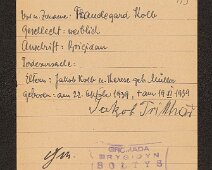 Vor u. Zuname: Fraudegard Kolb
Geschlecht: weiblich
Anschrift: Brigidau
Todesursache:
Eltern: Jakob Kolb u. Therese geb. Müller
Geboren: am 22. 1939, + am 19. II 1939
Jakob
GROMADA
BRYGIDYN
SOŁTYS